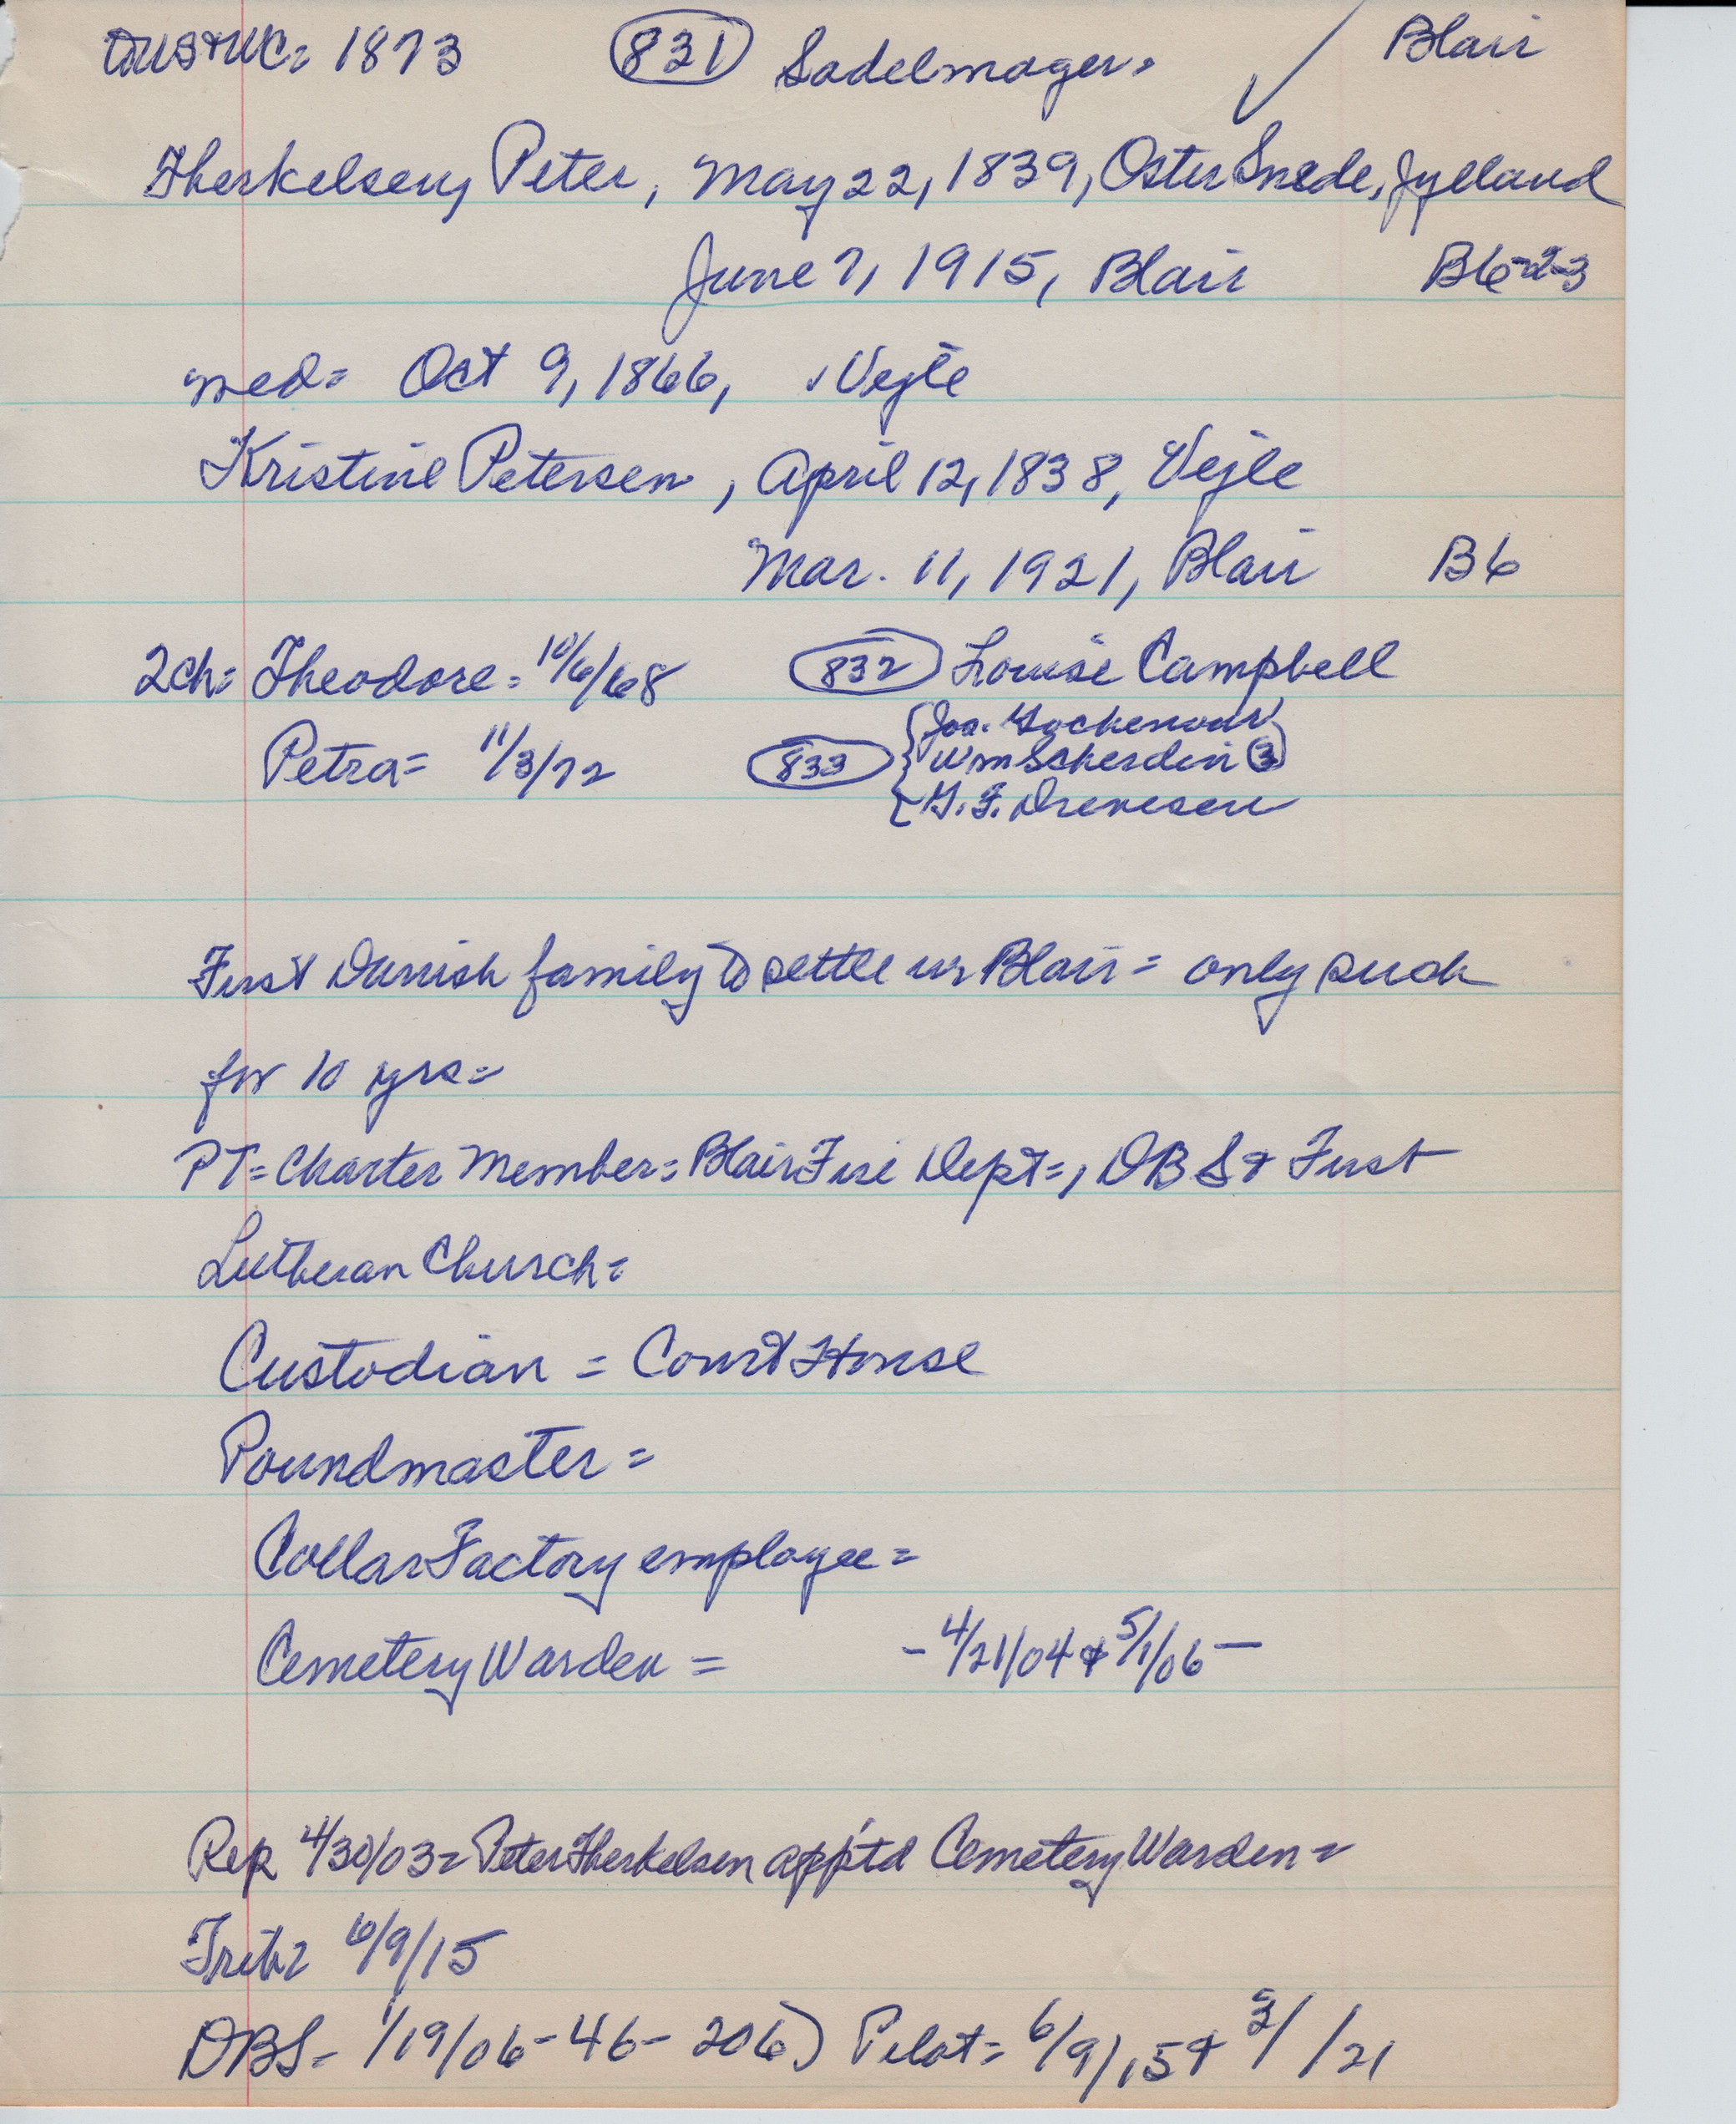 US+WC= 1873 (831) Sadelmager= Blair
Therkelsen, Peter, May 22, 1839, Oster Snede, Jylland
June 7, 1915, Blair B6-2-3
med= Oct 9, 1866, Vejle
Kristine Petersen, April 12, 1838, Vejle
Mar. 11, 1921, Blair B6
2ch= Theodore= 10/6/68 (832) Louise Campbell
Petra= 11/3/72 (833) { Jos. Gochenour
Wm Scherdin (3)
G. F. Drevesen
First Danish family to settle in Blair= only such
for 10 yrs=
PT= Charter Member= Blair Fire Dept=, DBS & First
Lutheran Church=
Custodian = Court House
Poundmaster =
Collar Factory employee=
Cemetery Warden = - 4/21/04 & 5/1/06 -
Rep 4/30/03= Peter Therkelsen app'td Cemetery Warden=
Trib= 6/9/15
DBS= 1/19/06-46-206) Pilot= 6/9/15 & 3/ /21